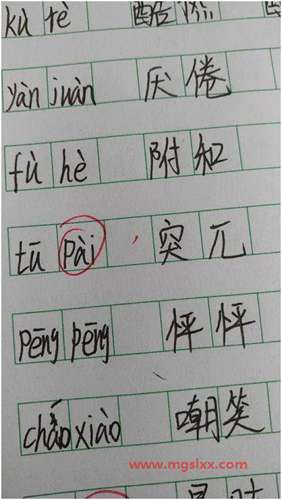 kù rè 酷热
yàn juàn 厌倦
fù hè 附和
tū pài 突兀
pēng pēng 怦怦
cháo xiào 嘲笑
www.mgslxx.com